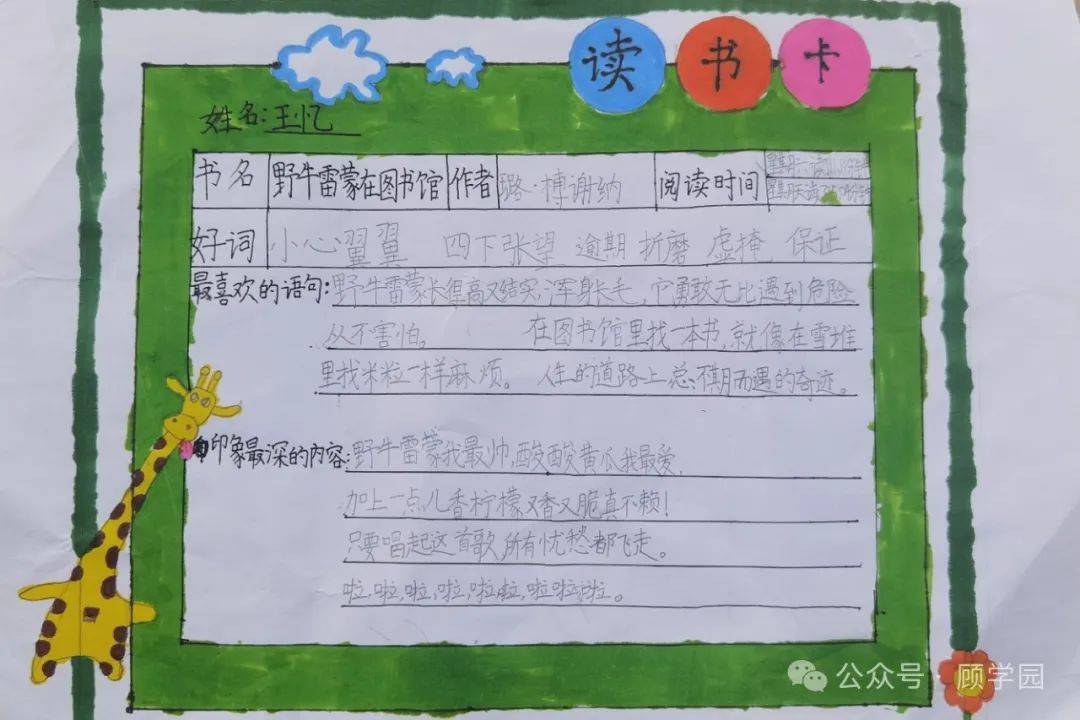 读书卡
姓名:王忆
书名 野牛雷蒙在图书馆 作者 璐·榑谢纳 阅读时间
好词 小心翼翼 四下张望 逾期 折磨 虚掩 保证
最喜欢的语句:野牛雷蒙长得高又结实,浑身长毛,它勇敢无比遇到危险
从不害怕。 在图书馆里找一本书,就像在雪堆
里找米粒一样麻烦。 人生的道路上总不期而遇的奇迹。
印象最深的内容:野牛雷蒙我最帅,酸酸黄瓜我最爱,
加上一点儿香柠檬又香又脆真不赖!
只要唱起这首歌,所有忧愁都飞走。
啦,啦,啦,啦,啦,啦,啦,啦,啦。
公众号·顾学园